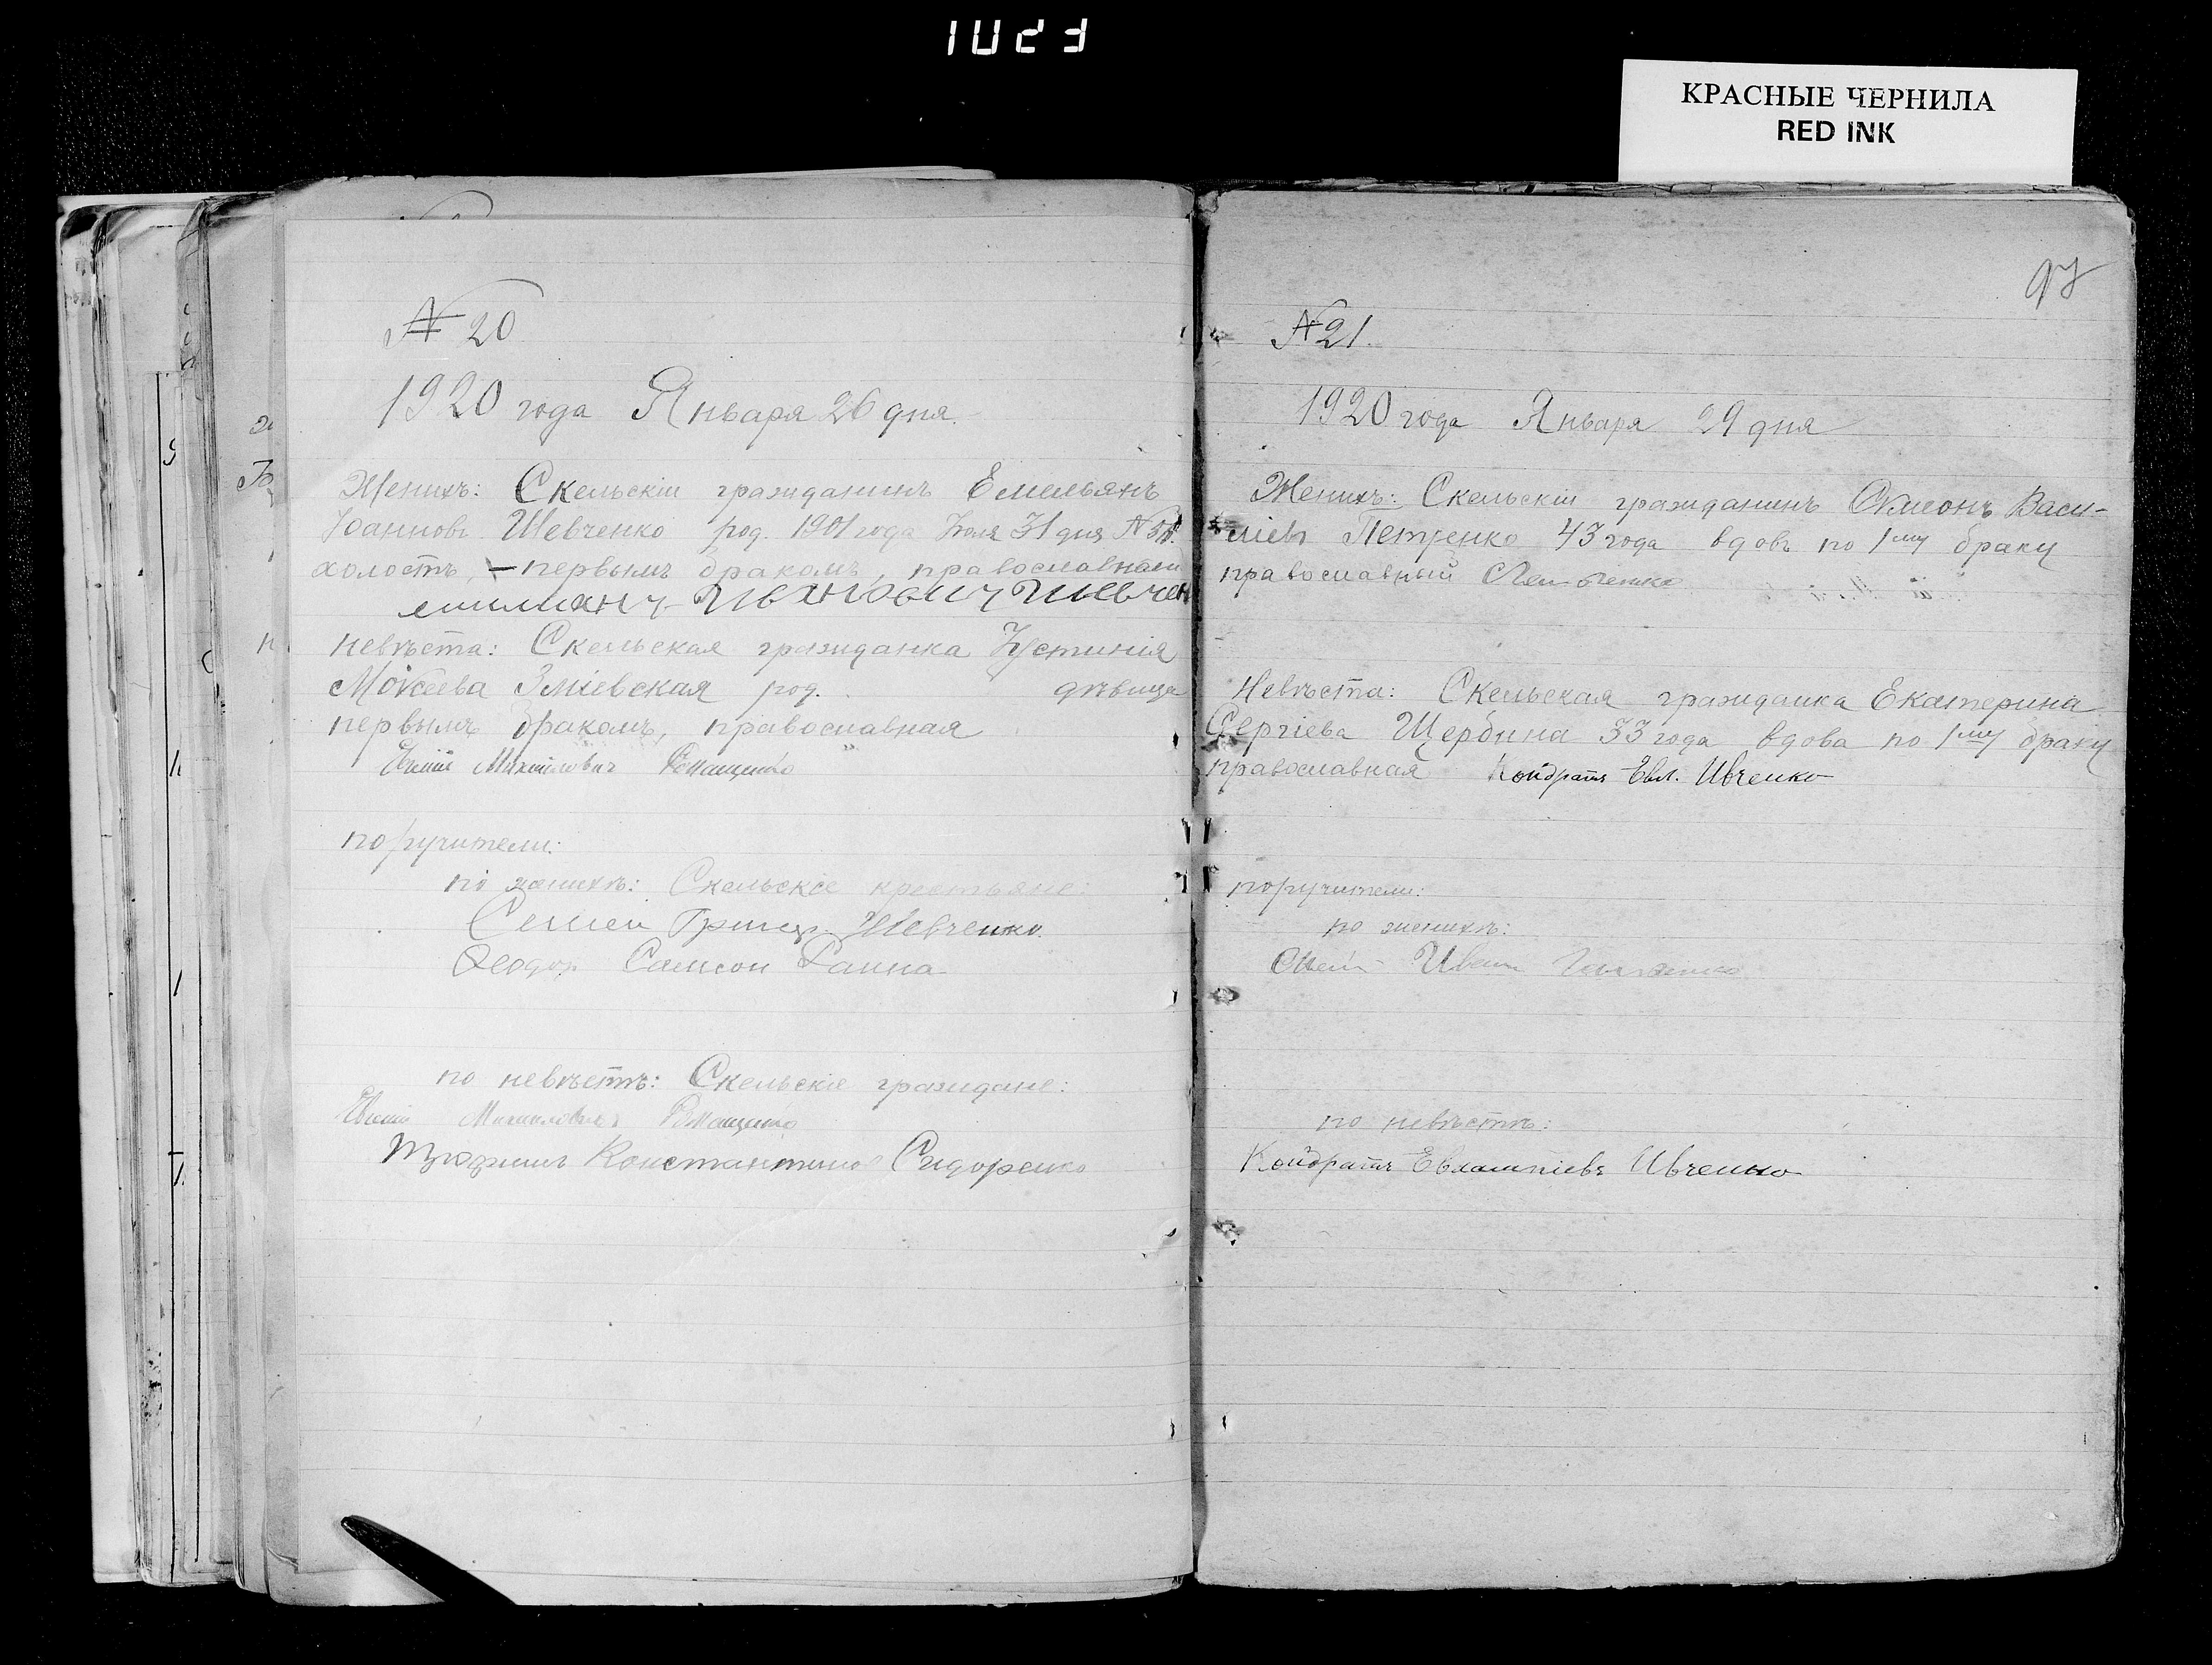 1023
КРАСНЫЕ ЧЕРНИЛА
RED INK
№ 20
1920 года Января 26 дня.
Женихъ: Скельскій гражданинъ Емельянъ
Іоанновъ Шевченко род. 1901 года Іюля 31 дня №
холостъ, – первымъ бракомъ, православный
Ивановичъ Шевчен
Невѣста: Скельская гражданка Іустинія
Моѵсеева Зміевская род. дѣвица
первымъ бракомъ, православная
Михайловичъ Ромащенко
поручители:
по женихѣ: Скельскіе крестьяне:
Семен Григ. Шевченко.
Ѳеодор Самсон
по невѣстѣ: Скельскіе граждане:
Михайловичъ Ромащенко
Константинов Сидоренко
97
№ 21.
1920 года Января 29 дня
Женихъ: Скельскій гражданинъ Симеонъ Васи-
ліевъ Петренко 43 года вдовъ по 1му браку
православный
Невѣста: Скельская гражданка Екатерина
Сергіева Щербина 33 года вдова по 1му браку
православная Кондратъ Евл. Ивченко
поручители:
по женихѣ:
Иван
по невѣстѣ:
Кондратъ Евлампіевъ Ивченко